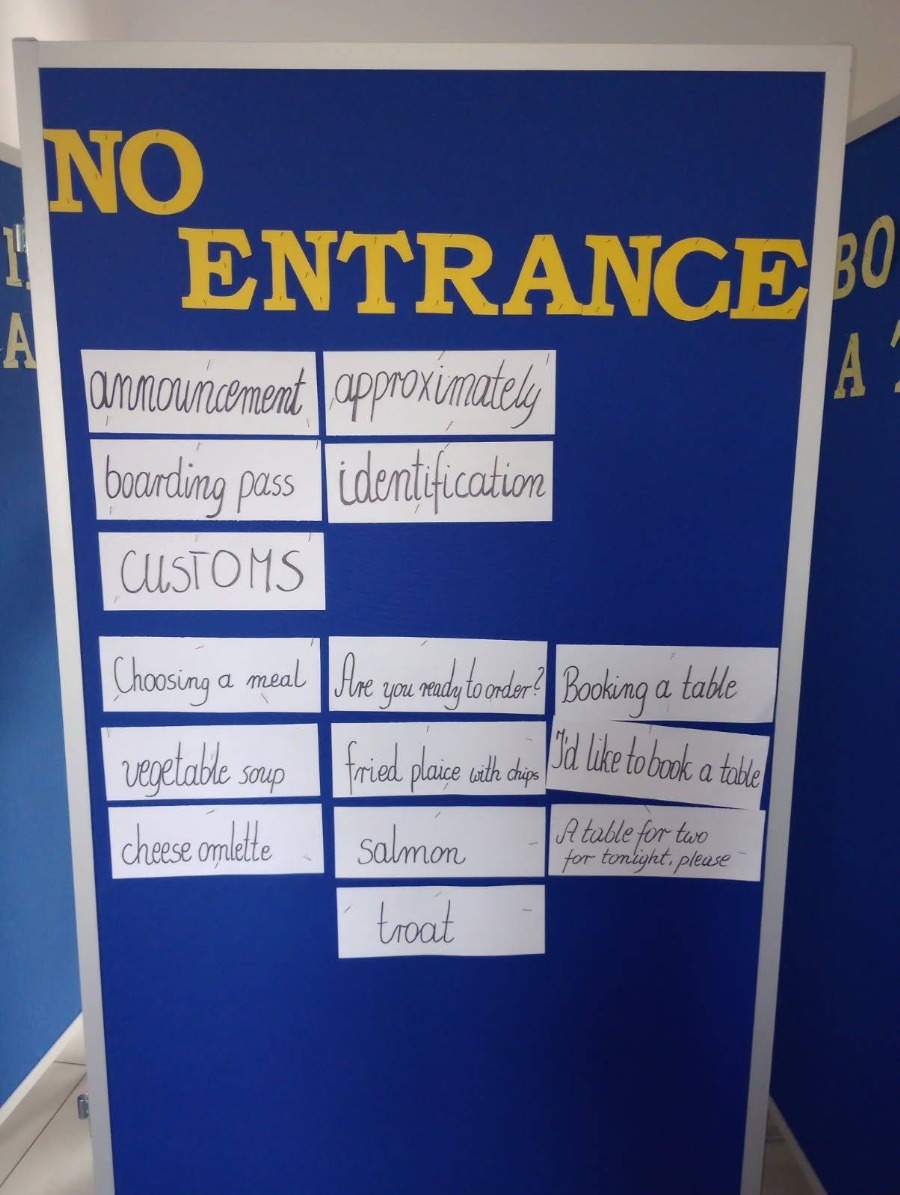 NO
ENTRANCE
announcement
approximately
boarding pass
identification
CUSTOMS
Choosing a meal
Are you ready to order?
Booking a table
vegetable soup
fried plaice with chips
I'd like to book a table
cheese omlette
salmon
A table for two
for tonight, please
troat
BO
A
A